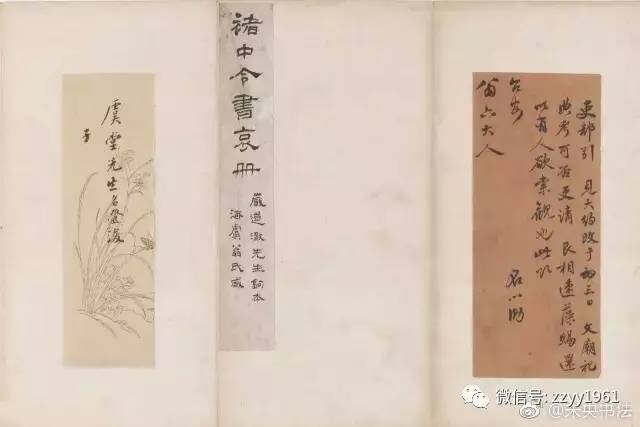 吏部引 見大約改于初三日 文廟祀
典考可否更清 遠藻賜還
以有人欲索觀也此叩
台安
翁六大人
名心泐
褚中令書哀冊
嚴道澈先生鉤本
海虞翁氏藏
虞雲先生
微信号: zzyy1961
@未央书法